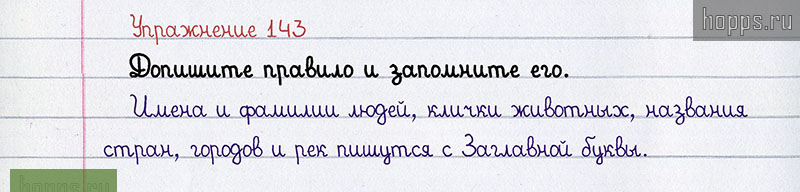 Упражнение 143
hopps.ru
Допишите правило и запомните его.
Имена и фамилии людей, клички животных, названия
стран, городов и рек пишутся с Заглавной буквы.
hopps.ru